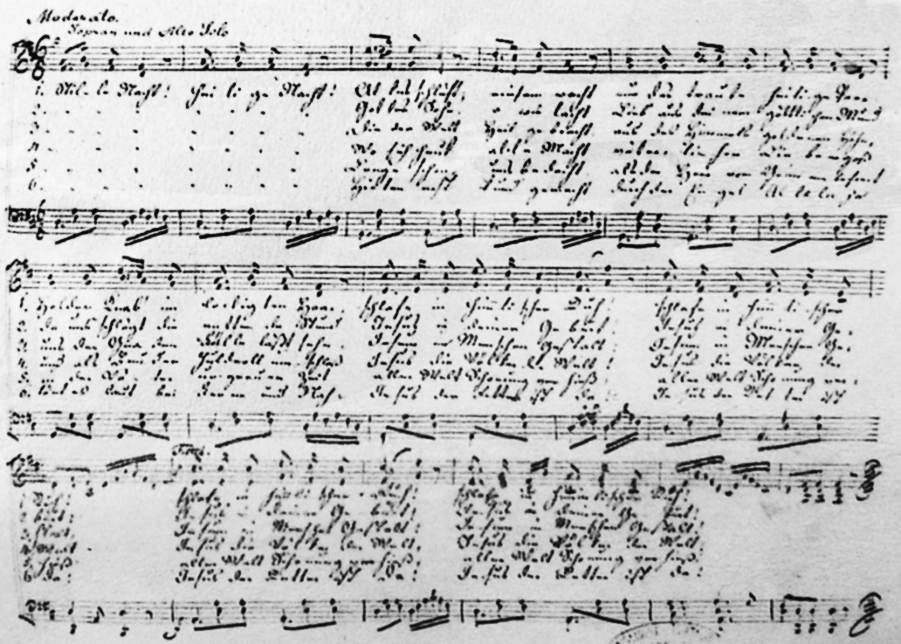 Moderato.
Sopran und Alto Solo
1. Stille Nacht! heilige Nacht! Alles schläft, einsam wacht nur das traute heilige Paar
2. Gottes Sohn, o wie lacht Lieb aus deinem göttlichen Mund
3. Die der Welt Heil gebracht, aus des Himmels goldenen Höhn,
4. Wo sich heut alle Macht väterlicher Liebe ergoß
5. Lange schon uns bedacht, als der Herr vom Grimme befreit
6. Hirten erst kund gemacht durch der Engel Alleluja
1. Holder Knab im lockigten Haar, schlafe in himmlischer Ruh! schlafe in himmlischer
2. da uns schlägt die rettende Stund. Jesus in deiner Geburt! Jesus in deiner Ge-
3. uns der Gnaden Fülle läßt sehen Jesum in Menschen Gestalt! Jesum in Menschen Ge-
4. und als Bruder huldvoll umschloß Jesus die Völker der Welt! Jesus die Völker der
5. aller Welt Schonung verhieß, aller Welt Schonung ver-
6. Jesus der Retter ist da! Jesus der Retter ist
1. Ruh! schlafe in himmlischer Ruh! schlafe in himmlischer Ruh!
2. burt! Jesus in deiner Geburt! Jesus in deiner Geburt!
3. stalt! Jesum in Menschen Gestalt! Jesum in Menschen Gestalt!
4. Welt Jesus die Völker der Welt, Jesus die Völker der Welt!
5. hieß aller Welt Schonung verhieß, aller Welt Schonung verhieß!
6. da! Jesus der Retter ist da! Jesus der Retter ist da!